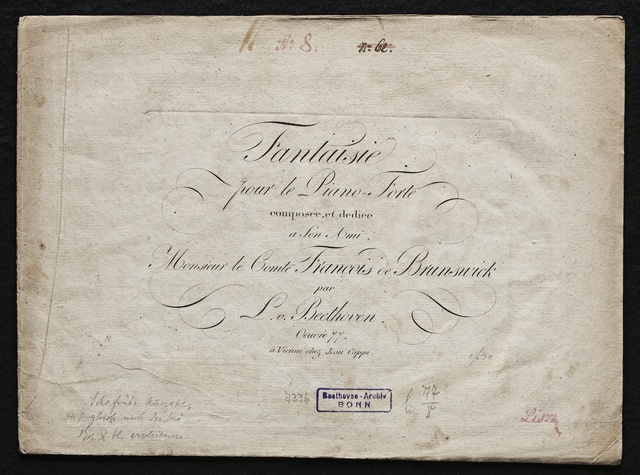 No 8.
no 62.
Fantaisie
pour le Piano-Forte
composée, et dediée
a Son Ami
Monsieur le Comte François de Brunswick
par
L. v. Beethoven.
Oeuvre 77.
à Vienne chez Jean Cappi
1f30
Sehr frühe Ausgabe,
nach
4336
Beethoven-Archiv
BONN
77
8